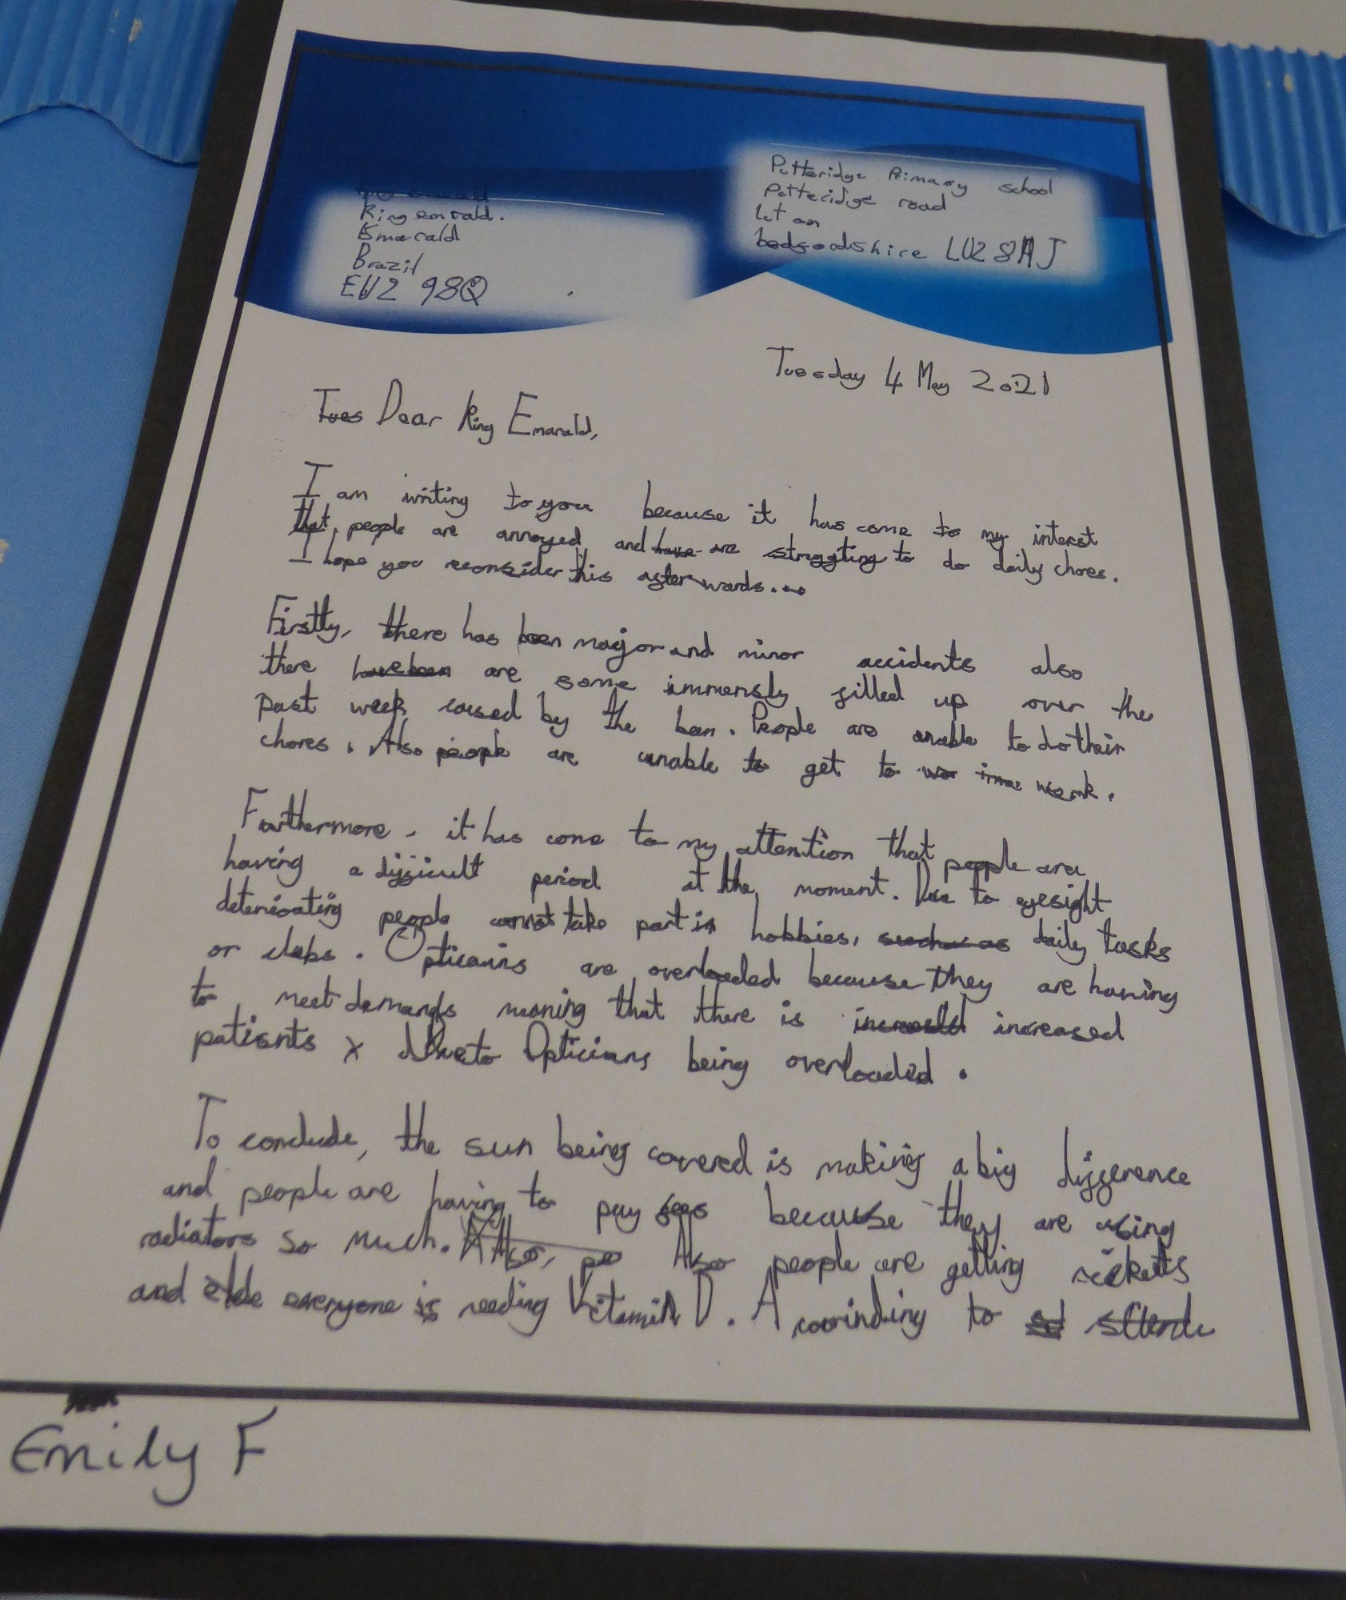 King emrald.
Emerald
Brazil
EU2 98Q
Putteridge Primary school
Putteridge road
Luton
bedfordshire LU2 8AJ
Tuesday 4 May 2021
Tues Dear King Emarald,
I am writing to you because it has come to my interest
that, people are annoyed and have are struggling to do daily chores.
I hope you reconsider this afterwards...
Firstly, there has been major and minor accidents also
there have been are some immensly filled up over the
past week caused by the ban. People are unable to do their
chores. Also people are unable to get to wor work.
Furthermore, it has come to my attention that people are
having a difficult period at the moment. Due to eyesight
deteriorating people cannot take part in hobbies, such as daily tasks
or clubs. Opticains are overloaded because they are having
to meet demands meaning that there is increased
patients Due to Opticians being overloaded.
To conclude, the sun being covered is making a big difference
and people are having to pay fees because they are using
radiators so much. Also, pe Also people are getting rickets
and everyone is needing Vitamin D. Acoorinding to
Emily F